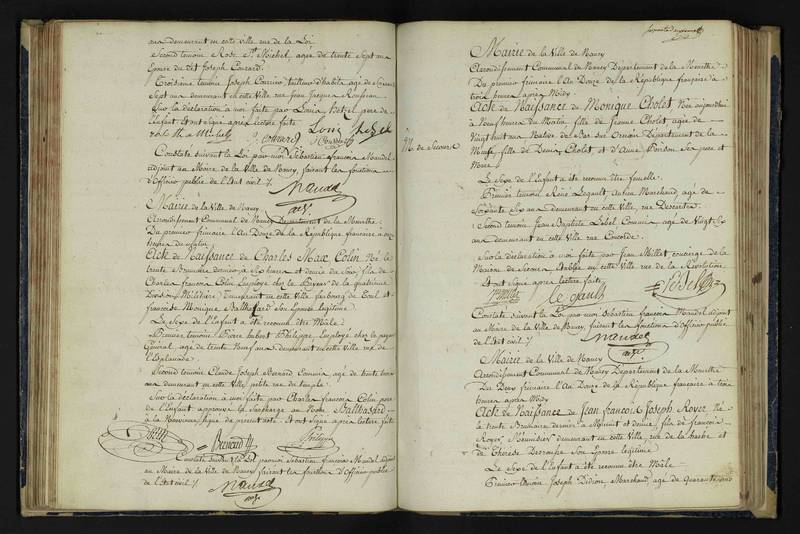 ans demeurant en cette ville rue de la Loi
Second temoin Rose St. Michel, agée de trente Sept ans
Epouse du dit Joseph Conrard
Troisieme temoin Joseph tailleur d'habits agé de
Sept ans demeurant en cette Ville rue Jean Jacques Rousseau
Sur la déclaration a moi faite par Louis Hetzel pere de
l'enfant Et ont Signé après lecture faite
Constaté suivant la Loi par moi Sébastien françois Mandel
adjoint au Maire de la Ville de Nancy, faisant les fonctions
d'Officier public de l'Etat civil
Mairie de la Ville de Nancy
Arrondissement Communal de Nancy Département de la Meurthe
Du premier frimaire l'An Douze de la République française à onze
heures du matin
Acte de Naissance de Charles Max Colin Né le
trente Brumaire dernier à heures et demie du Soir, fils de
Charles françois Colin Employé chez le Payeur de la quatrieme
Division Militaire demeurant en cette Ville faubourg de Toul et
françoise Monique Balthasard Son Epouse légitime
Le Sexe de l'Enfant a été reconnu être Mâle
Premier temoin Pierre hubert Philippe, Employé chez le payeur
Général, agé de trente ans demeurant en cette Ville rue de
l'Esplanade
Second temoin Claude Joseph Bernard Commis, agé de trente
ans demeurant en cette Ville petite rue du temple
Sur la déclaration a moi faite par Charles françois Colin pere
de l'Enfant approuvé la Surcharge au Nom Balthasard
à la Neuvieme ligne du present acte Et ont Signé après lecture faite
Constaté suivant la Loi par moi Sébastien françois Mandel adjoint
au Maire de la Ville de Nancy faisant les fonctions d'Officier public
de l'Etat civil
Mairie de la Ville de Nancy
Arrondissement Communal de Nancy Département de la Meurthe
Du premier frimaire l'An Douze de la République française à
trois heures après Midy
Acte de Naissance de Monique Cholet Née aujourd'hui
à Neuf heures du Matin fille de Jeanne Cholet agée de
Vingt huit ans Native de Bar sur Ornain Département de la
Meuse fille de Denis Cholet, et d'Anne Poirson Ses pere et
Mere
M. de Secours
Le Sexe de l'Enfant a été reconnu être femelle
Premier temoin René Legault ancien Marchand, agé de
Soixante ans demeurant en cette Ville, rue Descartes
Second temoin Jean Baptiste Lebel Commis agé de Vingt
ans demeurant en cette Ville rue Concorde
Sur la déclaration a moi faite par Jean Millet concierge de la
Maison de Secours Etablie en cette Ville rue de la Révolution
Et ont Signé après lecture faite
Legault
Constaté suivant la Loi par moi Sébastien françois Mandel adjoint
au Maire de la Ville de Nancy, faisant les fonctions d'Officier public
de l'Etat civil
Mairie de la Ville de Nancy
Arrondissement Communal de Nancy Département de la Meurthe
Du Deux frimaire l'An Douze de la République française à trois
heures après Midy
Acte de Naissance de Jean françois Joseph Royer Né
le trente Brumaire dernier à Minuit et demie, fils de françois
Royer Menuisier demeurant en cette Ville, rue de la barbe et
de Thérese Son Epouse légitime
Le Sexe de l'Enfant a été reconnu être Mâle
Premier temoin Joseph Didion, Marchand, agé de quarante